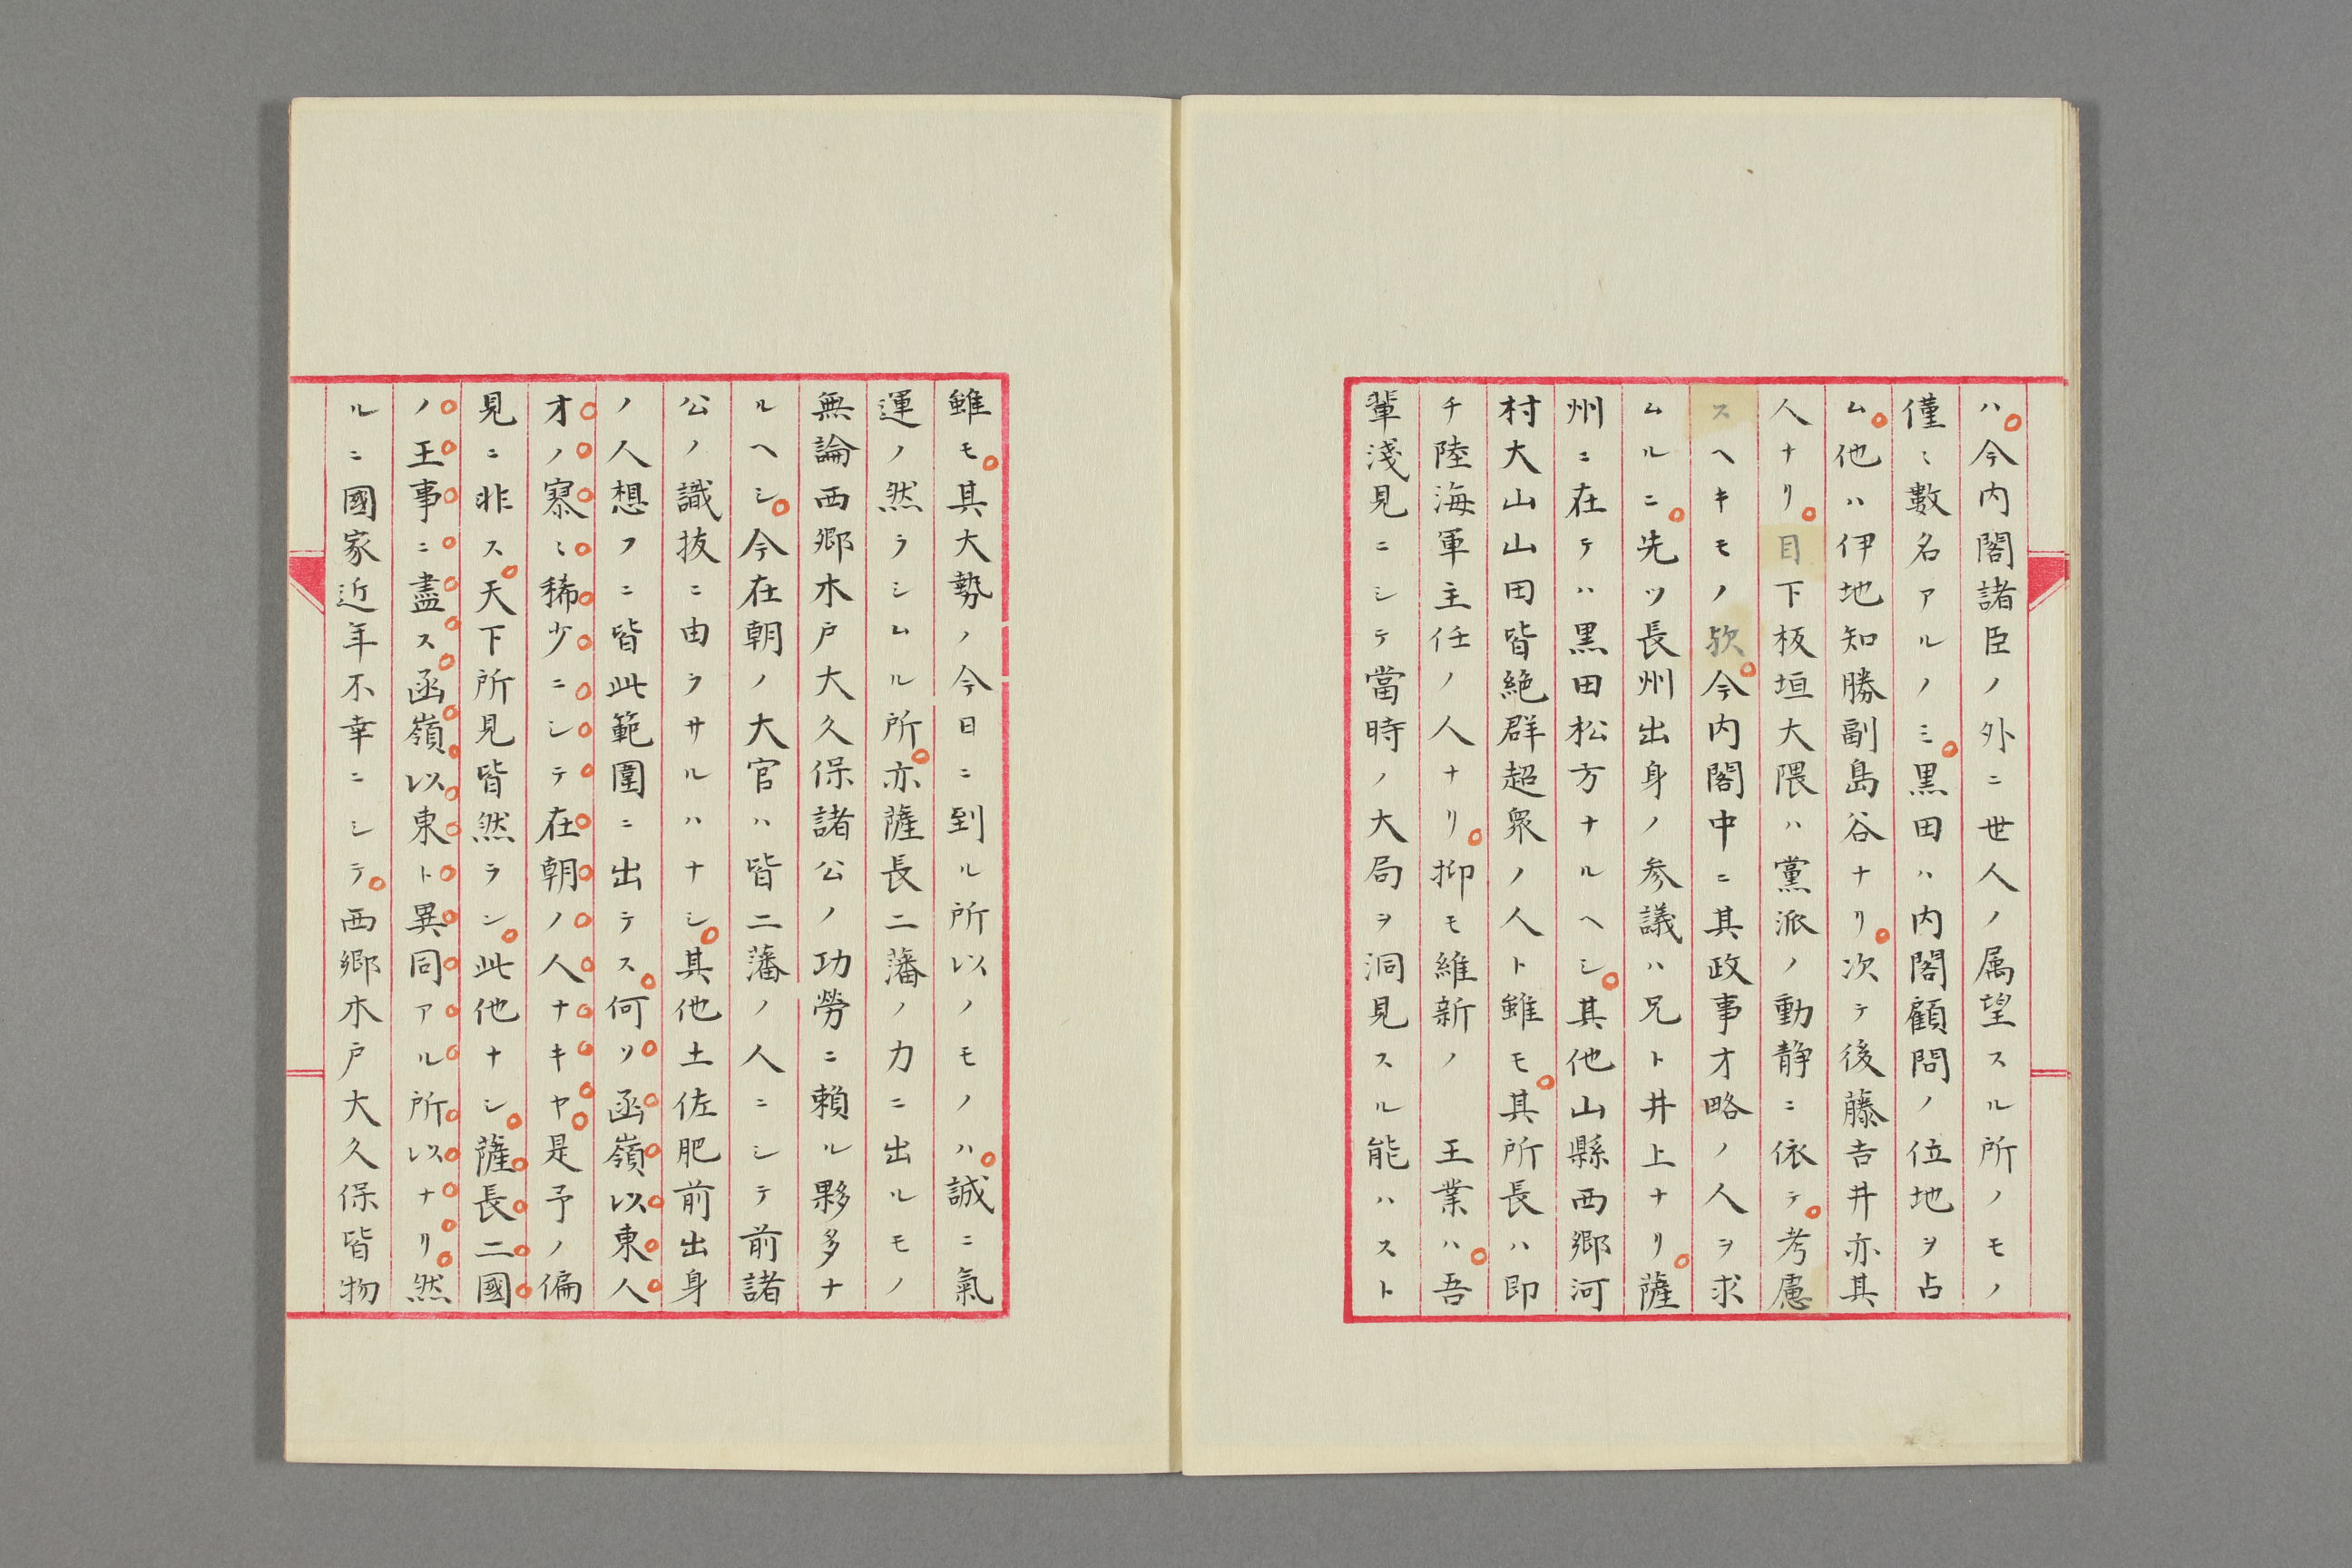 ハ今内閣諸臣ノ外ニ世人ノ属望スル所ノモノ
僅ミ數名アルノミ黒田ハ内閣顧問ノ位地ヲ占
ム他ハ伊地知勝副島谷ナリ次テ後藤吉井亦其
人ナリ目下板垣大隈ハ黨派ノ動静ニ依テ考慮
スヘキモノ歟今内閣中ニ其政事才略ノ人ヲ求
ムルニ先ツ長州出身ノ参議ハ兄ト井上ナリ薩
州ニ在テハ黒田松方ナルヘシ其他山縣西郷河
村大山山田皆絶群超衆ノ人ト雖モ其所長ハ即
チ陸海軍主任ノ人ナリ抑モ維新ノ　王業ハ吾
輩淺見ニシテ當時ノ大局ヲ洞見スル能ハスト
雖モ其大勢ノ今日ニ到ル所以ノモノハ誠ニ氣
運ノ然ラシムル所亦薩長二藩ノ力ニ出ルモノ
無論西郷木戸大久保諸公ノ功勞ニ頼ル夥多ナ
ルヘシ今在朝ノ大官ハ皆二藩ノ人ニシテ前諸
公ノ識抜ニ由ラサルハナシ其他土佐肥前出身
ノ人想フニ皆此範圍ニ出テス何ソ函嶺以東人
才ノ寥ミ稀少ニシテ在朝ノ人ナキヤ是予ノ偏
見ニ非ス天下所見皆然ラン此他ナシ薩長二國
ノ王事ニ盡ス函嶺以東ト異同アル所以ナリ然
ルニ國家近年不幸ニシテ西郷木戸大久保皆物